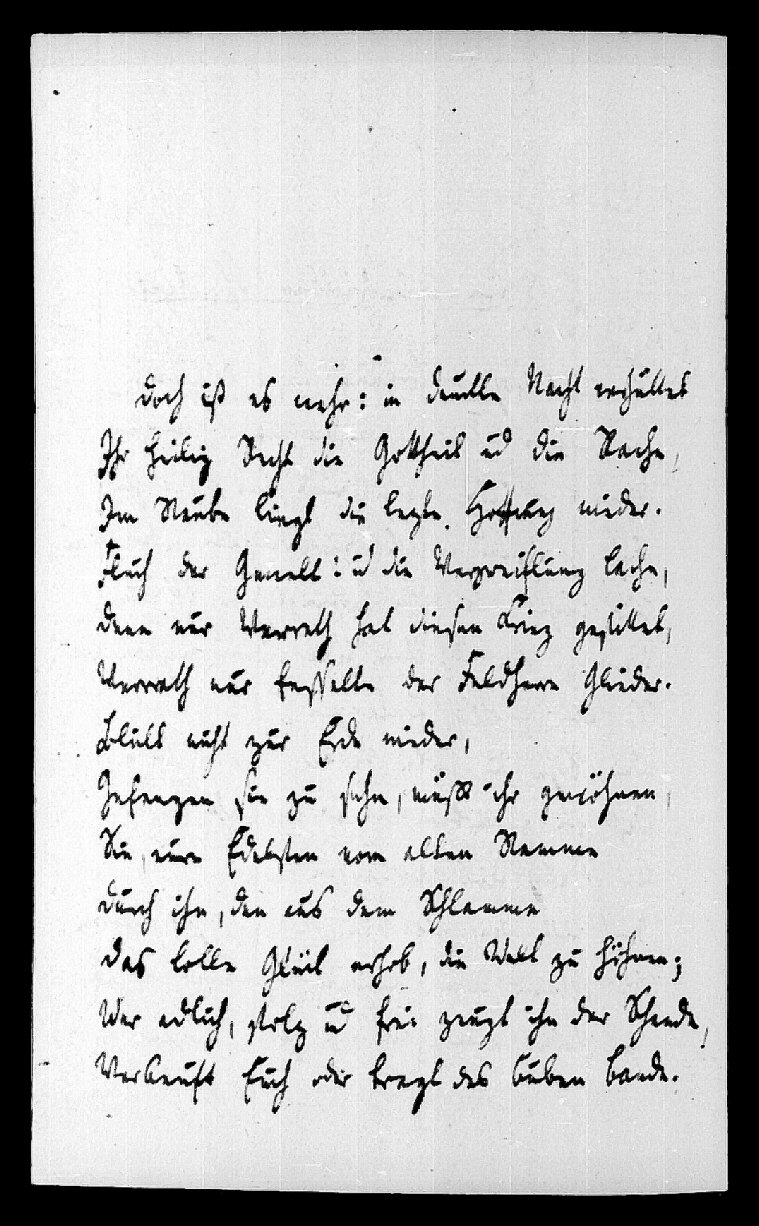 Doch ist es mehr: in dunkle Nacht verhüllet
Ihr heilig Recht die Gottheit ud die Rache,
Im Staube liegt die lezte Hoffnung nieder.
Fluch der Gewalt! ud die Verzweiflung lache,
denn nur Verrath hat diesen Krieg gestillet,
Verrath nur fesselte der Feldherrn Glieder.
Blickt nicht zur Erde nieder,
Gefangen sie zu sehn, müßt ihr gewöhnen,
Sie, eure Edelsten vom alten Stamme
durch ihn, den aus dem Schlamme
das tolle Glück erhob, die Welt zu höhnen;
Wer adlich, stolz ud frei zeugt ihn der Schande,
Verkauft Euch oder tragt des Buben Bande.